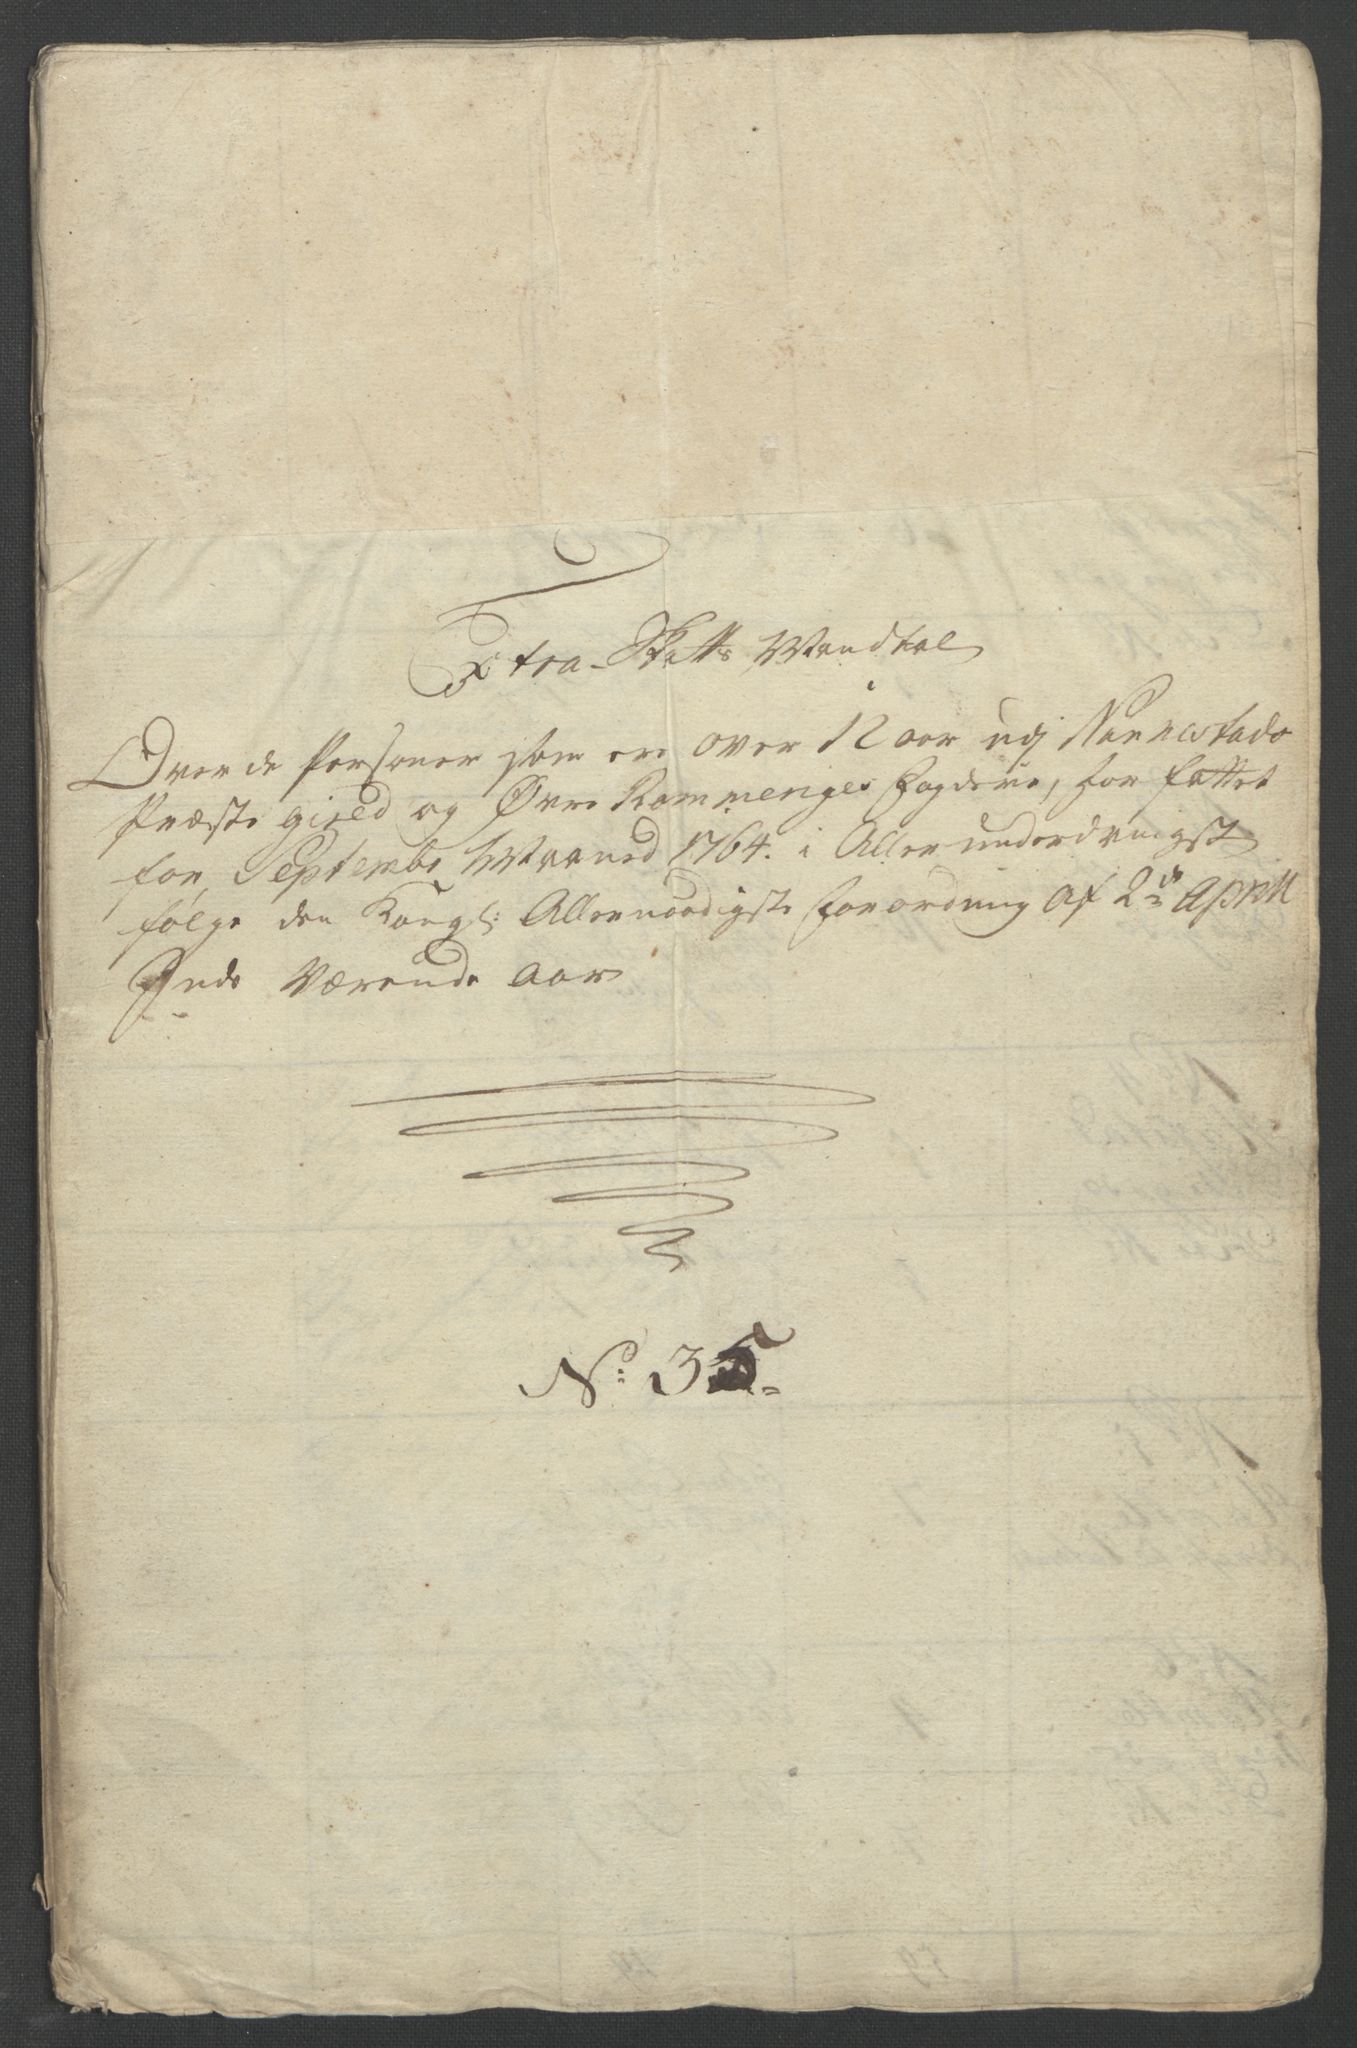 Extra-Skatts Mandtal
Over de Personer som ere over 12 aar udj Nannestads
Præste gield og Øvre Rommeriges Fogderie, for fattet
for Septembr Maaned 1764. i Allerunderdanigst
følge den Kongl: Allernaadigste forordning Af 2de Aprill
Inde Værende Aar
No: 35.